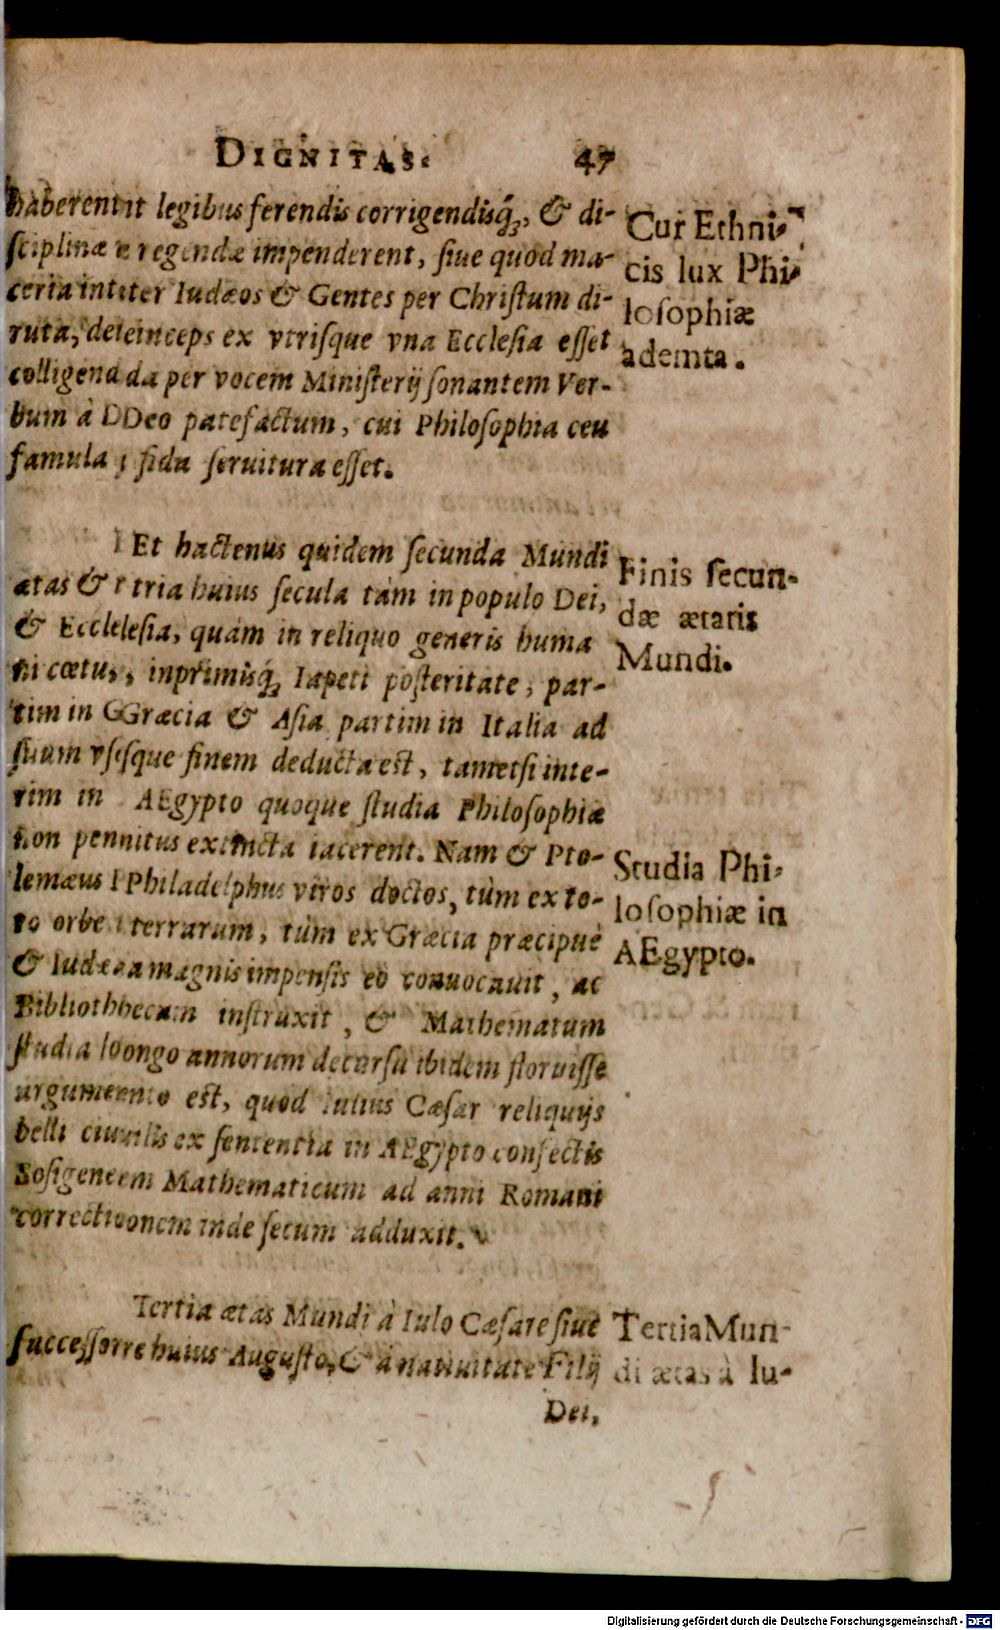 DIGNITAS. 47
haberent legibus ferendis corrigendisq́;, & di-
sciplinæ regendæ impenderent, siue quod ma-
ceria inter Iudæos & Gentes per Christum di-
ruta, deinceps ex vtrisque vna Ecclesia esset
colligenda per vocem Ministerij sonantem Ver-
bum à Deo patefactum, cui Philosophia ceu
famula fida seruitura esset.
Cur Ethni-
cis lux Phi-
losophiæ
ademta.
Et hactenus quidem secunda Mundi
ætas & tria huius secula tàm in populo Dei,
& Ecclesia, quàm in reliquo generis huma
ni cœtu, inprimisq́; Iapeti posteritate, par-
tim in Græcia & Asia partim in Italia ad
suum vsque finem deducta est, tametsi inte-
rim in AEgypto quoque studia Philosophiæ
non penitus extincta iacerent. Nam & Pto-
lemæus Philadelphus viros doctos, tùm ex to-
to orbe terrarum, tùm ex Græcia præcipuè
& Iudæa magnis impensis eò conuocauit, ac
Bibliothecam instruxit, & Mathematum
studia longo annorum decursu ibidem floruisse
argumento est, quod Iulius Cæsar reliquijs
belli ciuilis ex sententia in AEgypto confectis
Sosigenem Mathematicum ad anni Romani
correctionem inde secum adduxit.
Finis secun-
dæ ætatis
Mundi.
Studia Phi-
losophiæ in
AEgypto.
Tertia ætas Mundi à Iulo Cæsare siue
successore huius Augusto, & à natiuitate Filij
Dei,
Tertia Mun-
di ætas à Iu-
Digitalisierung gefördert durch die Deutsche Forschungsgemeinschaft - DFG